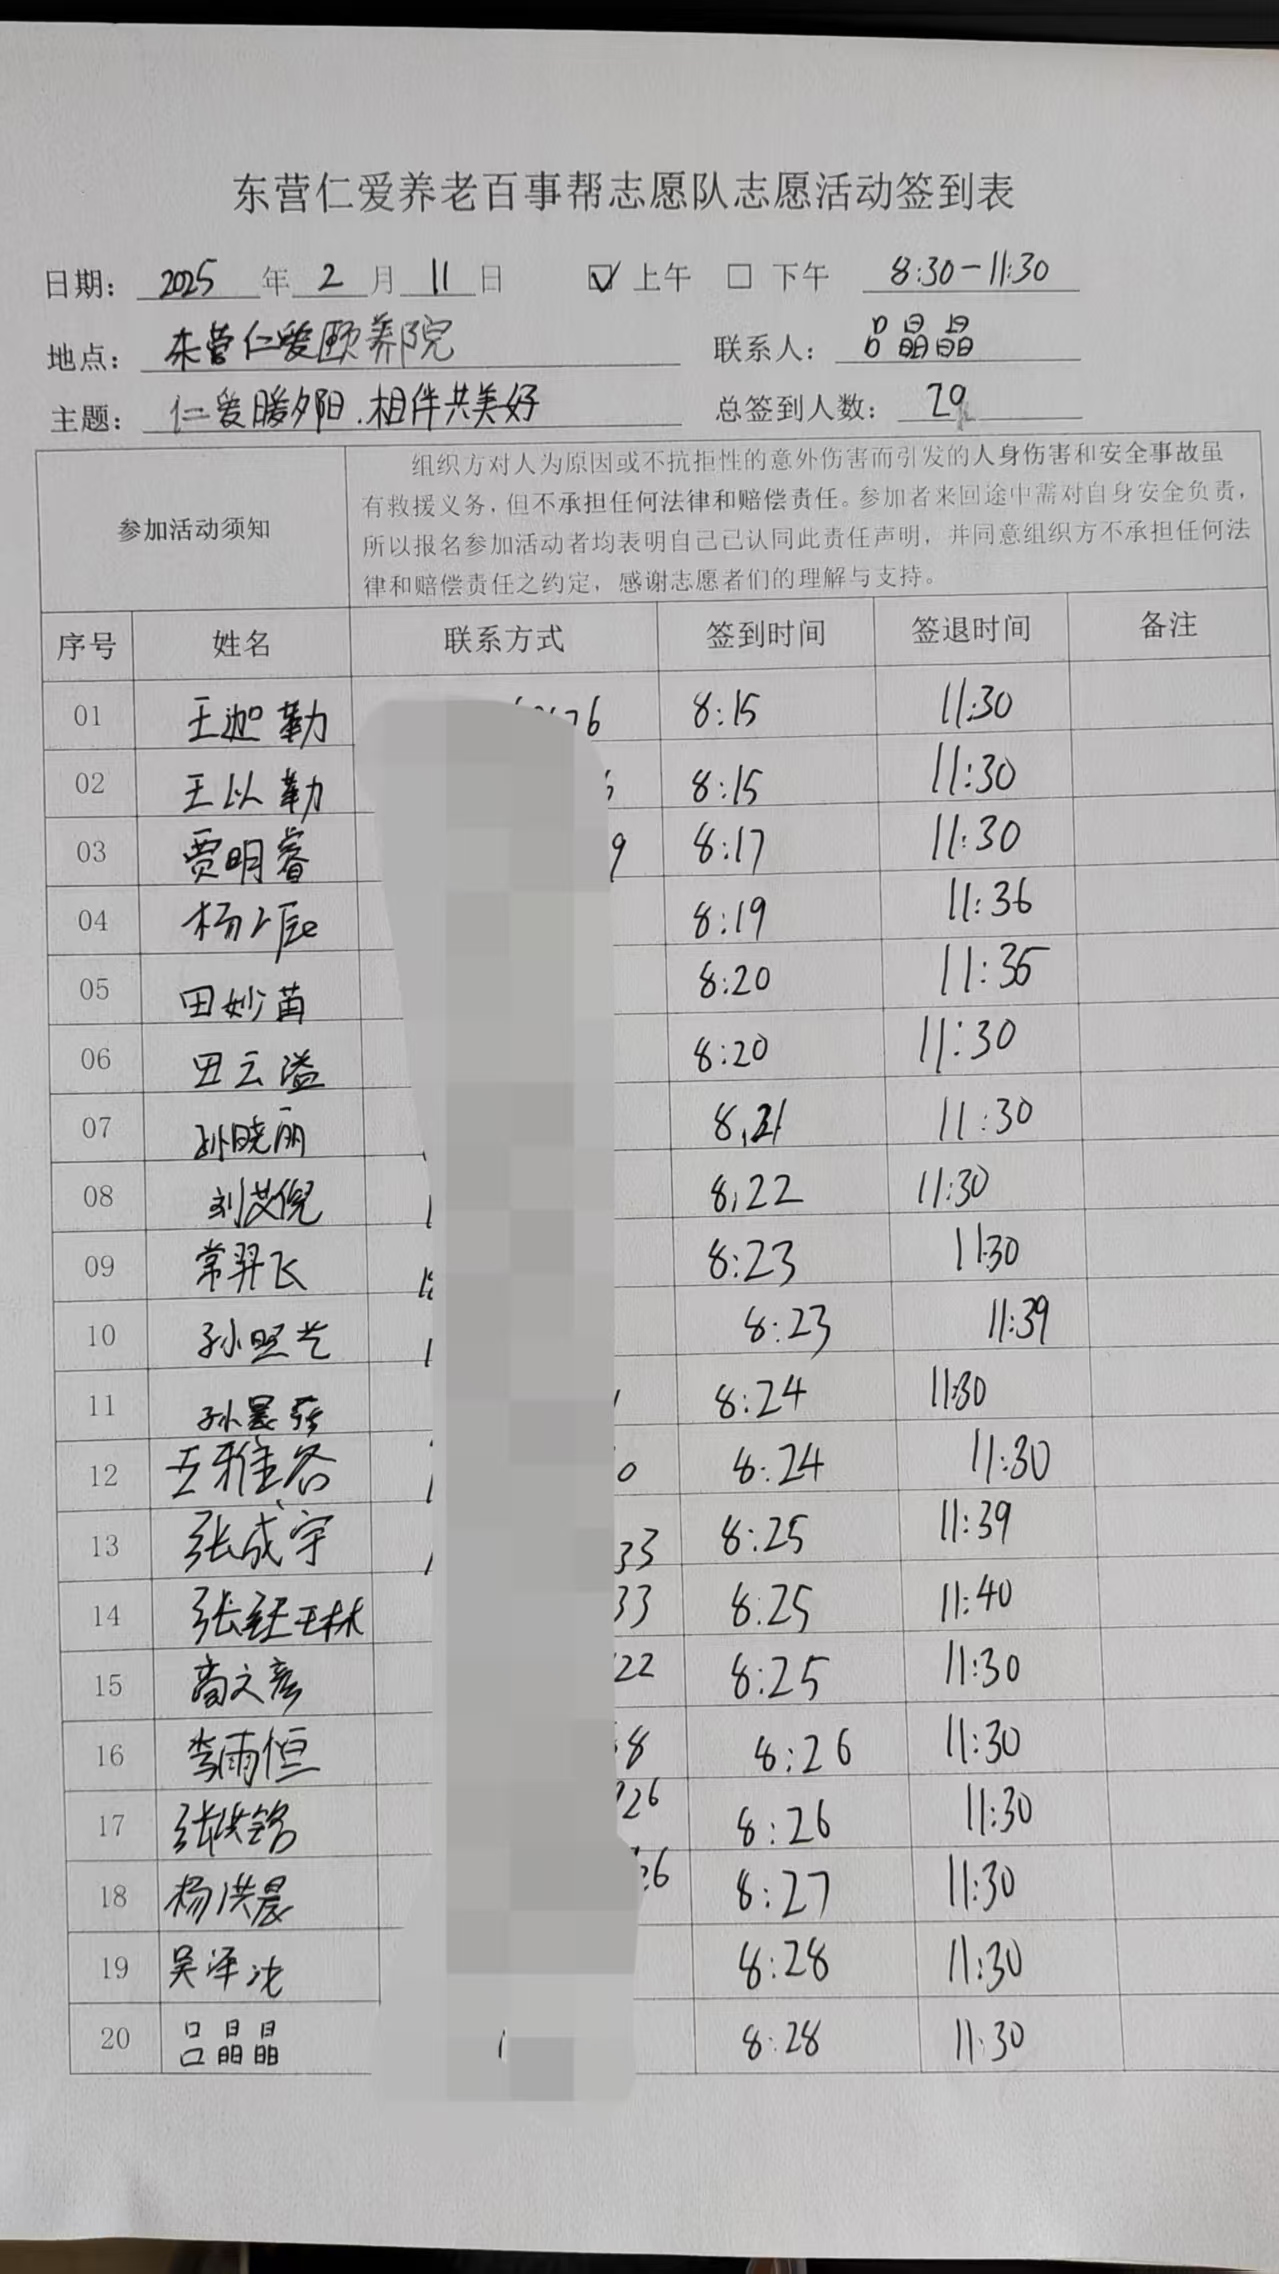 东营仁爱养老百事帮志愿队志愿活动签到表
日期: 2025 年 2 月 11 日 ☑ 上午 □ 下午 8:30-11:30
地点: 东营仁爱颐养院 联系人: 吕晶晶
主题: 仁爱暖夕阳.相伴共美好 总签到人数: 29
参加活动须知
组织方对人为原因或不抗拒性的意外伤害而引发的人身伤害和安全事故虽
有救援义务,但不承担任何法律和赔偿责任。参加者来回途中需对自身安全负责,
所以报名参加活动者均表明自己已认同此责任声明,并同意组织方不承担任何法
律和赔偿责任之约定,感谢志愿者们的理解与支持。
序号 姓名 联系方式 签到时间 签退时间 备注
01 王迦勒 8:15 11:30
02 王以勒 8:15 11:30
03 贾明睿 9 8:17 11:30
04 杨 辰 8:19 11:36
05 田妙苗 8:20 11:35
06 田云溢 8:20 11:30
07 孙晓丽 8,21 11:30
08 刘艾倪 8,22 11:30
09 常羿飞 8:23 11:30
10 孙照兰 8:23 11:39
11 孙 8:24 11:30
12 王雅各 0 8:24 11:30
13 张成宇 33 8:25 11:39
14 张钰琳 33 8:25 11:40
15 文彦 22 8:25 11:30
16 李雨恒 8 8:26 11:30
17 张洪铭 26 8:26 11:30
18 杨洪晨 26 8:27 11:30
19 吴泽沈 8:28 11:30
20 吕晶晶 8:28 11:30